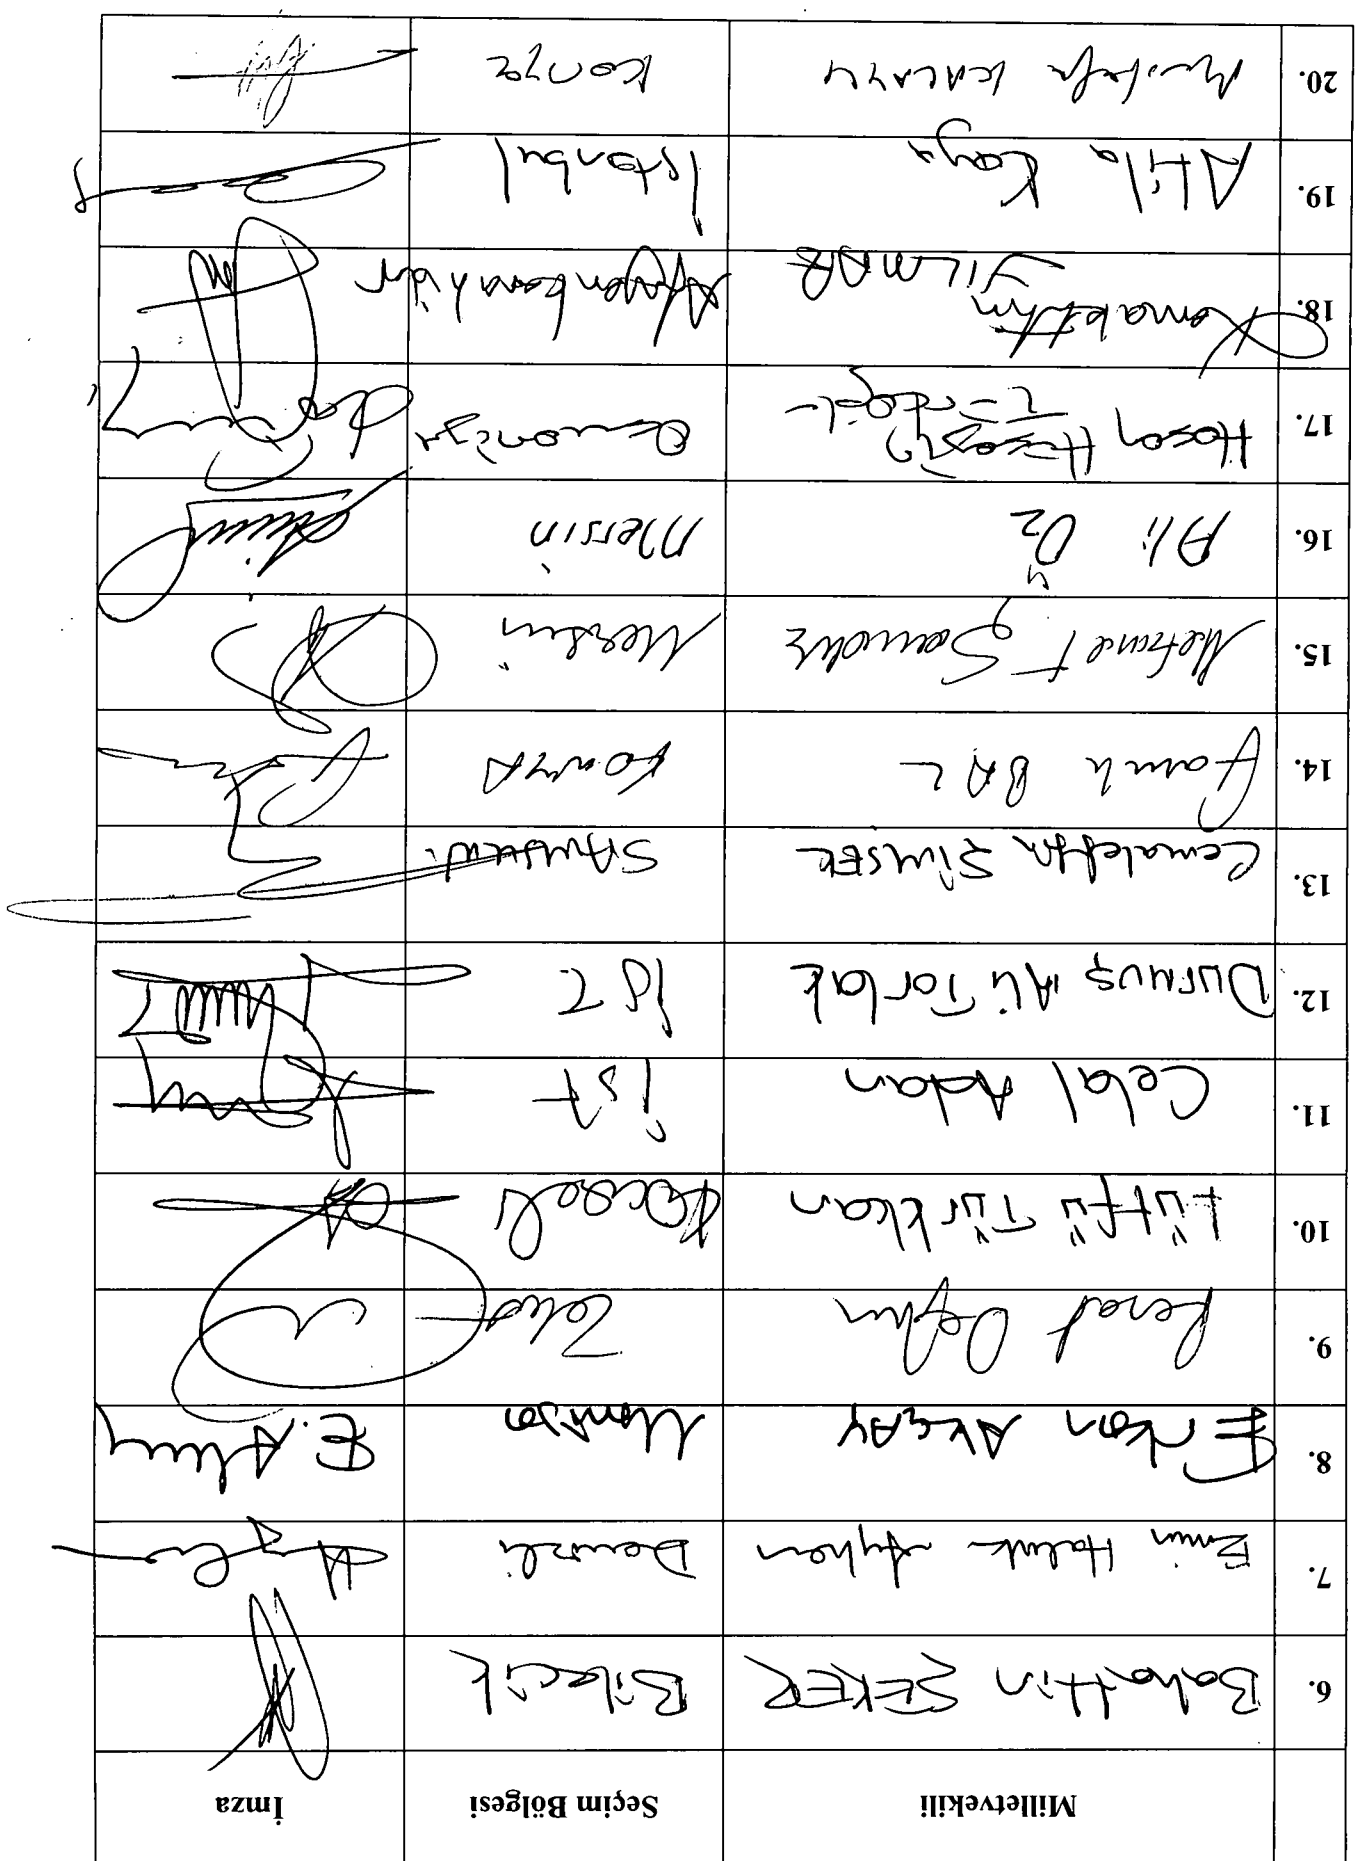 Milletvekili Seçim Bölgesi İmza
6. Bahattin ŞEKER Bilecik
7. Emin Haluk Ayhan Denizli
8. Erkan AKÇAY Manisa E. Akçay
9. Reşat Doğru Tokat
10. Lütfü Türkkan Kocaeli
11. Celal Adan İst
12. DURMUŞ Ali Torlak İST
13. Cemalettin ŞİMŞEK SAMSUN
14. Faruk BAL KONYA
15. Mehmet Şandır Mersin
16. Ali Öz Mersin
17. Hasan Hüseyin Osmaniye
18. Kemalettin Afyonkarahisar
YILMAZ
19. Atila Kaya İstanbul
20. Mustafa KALAYCI Konya